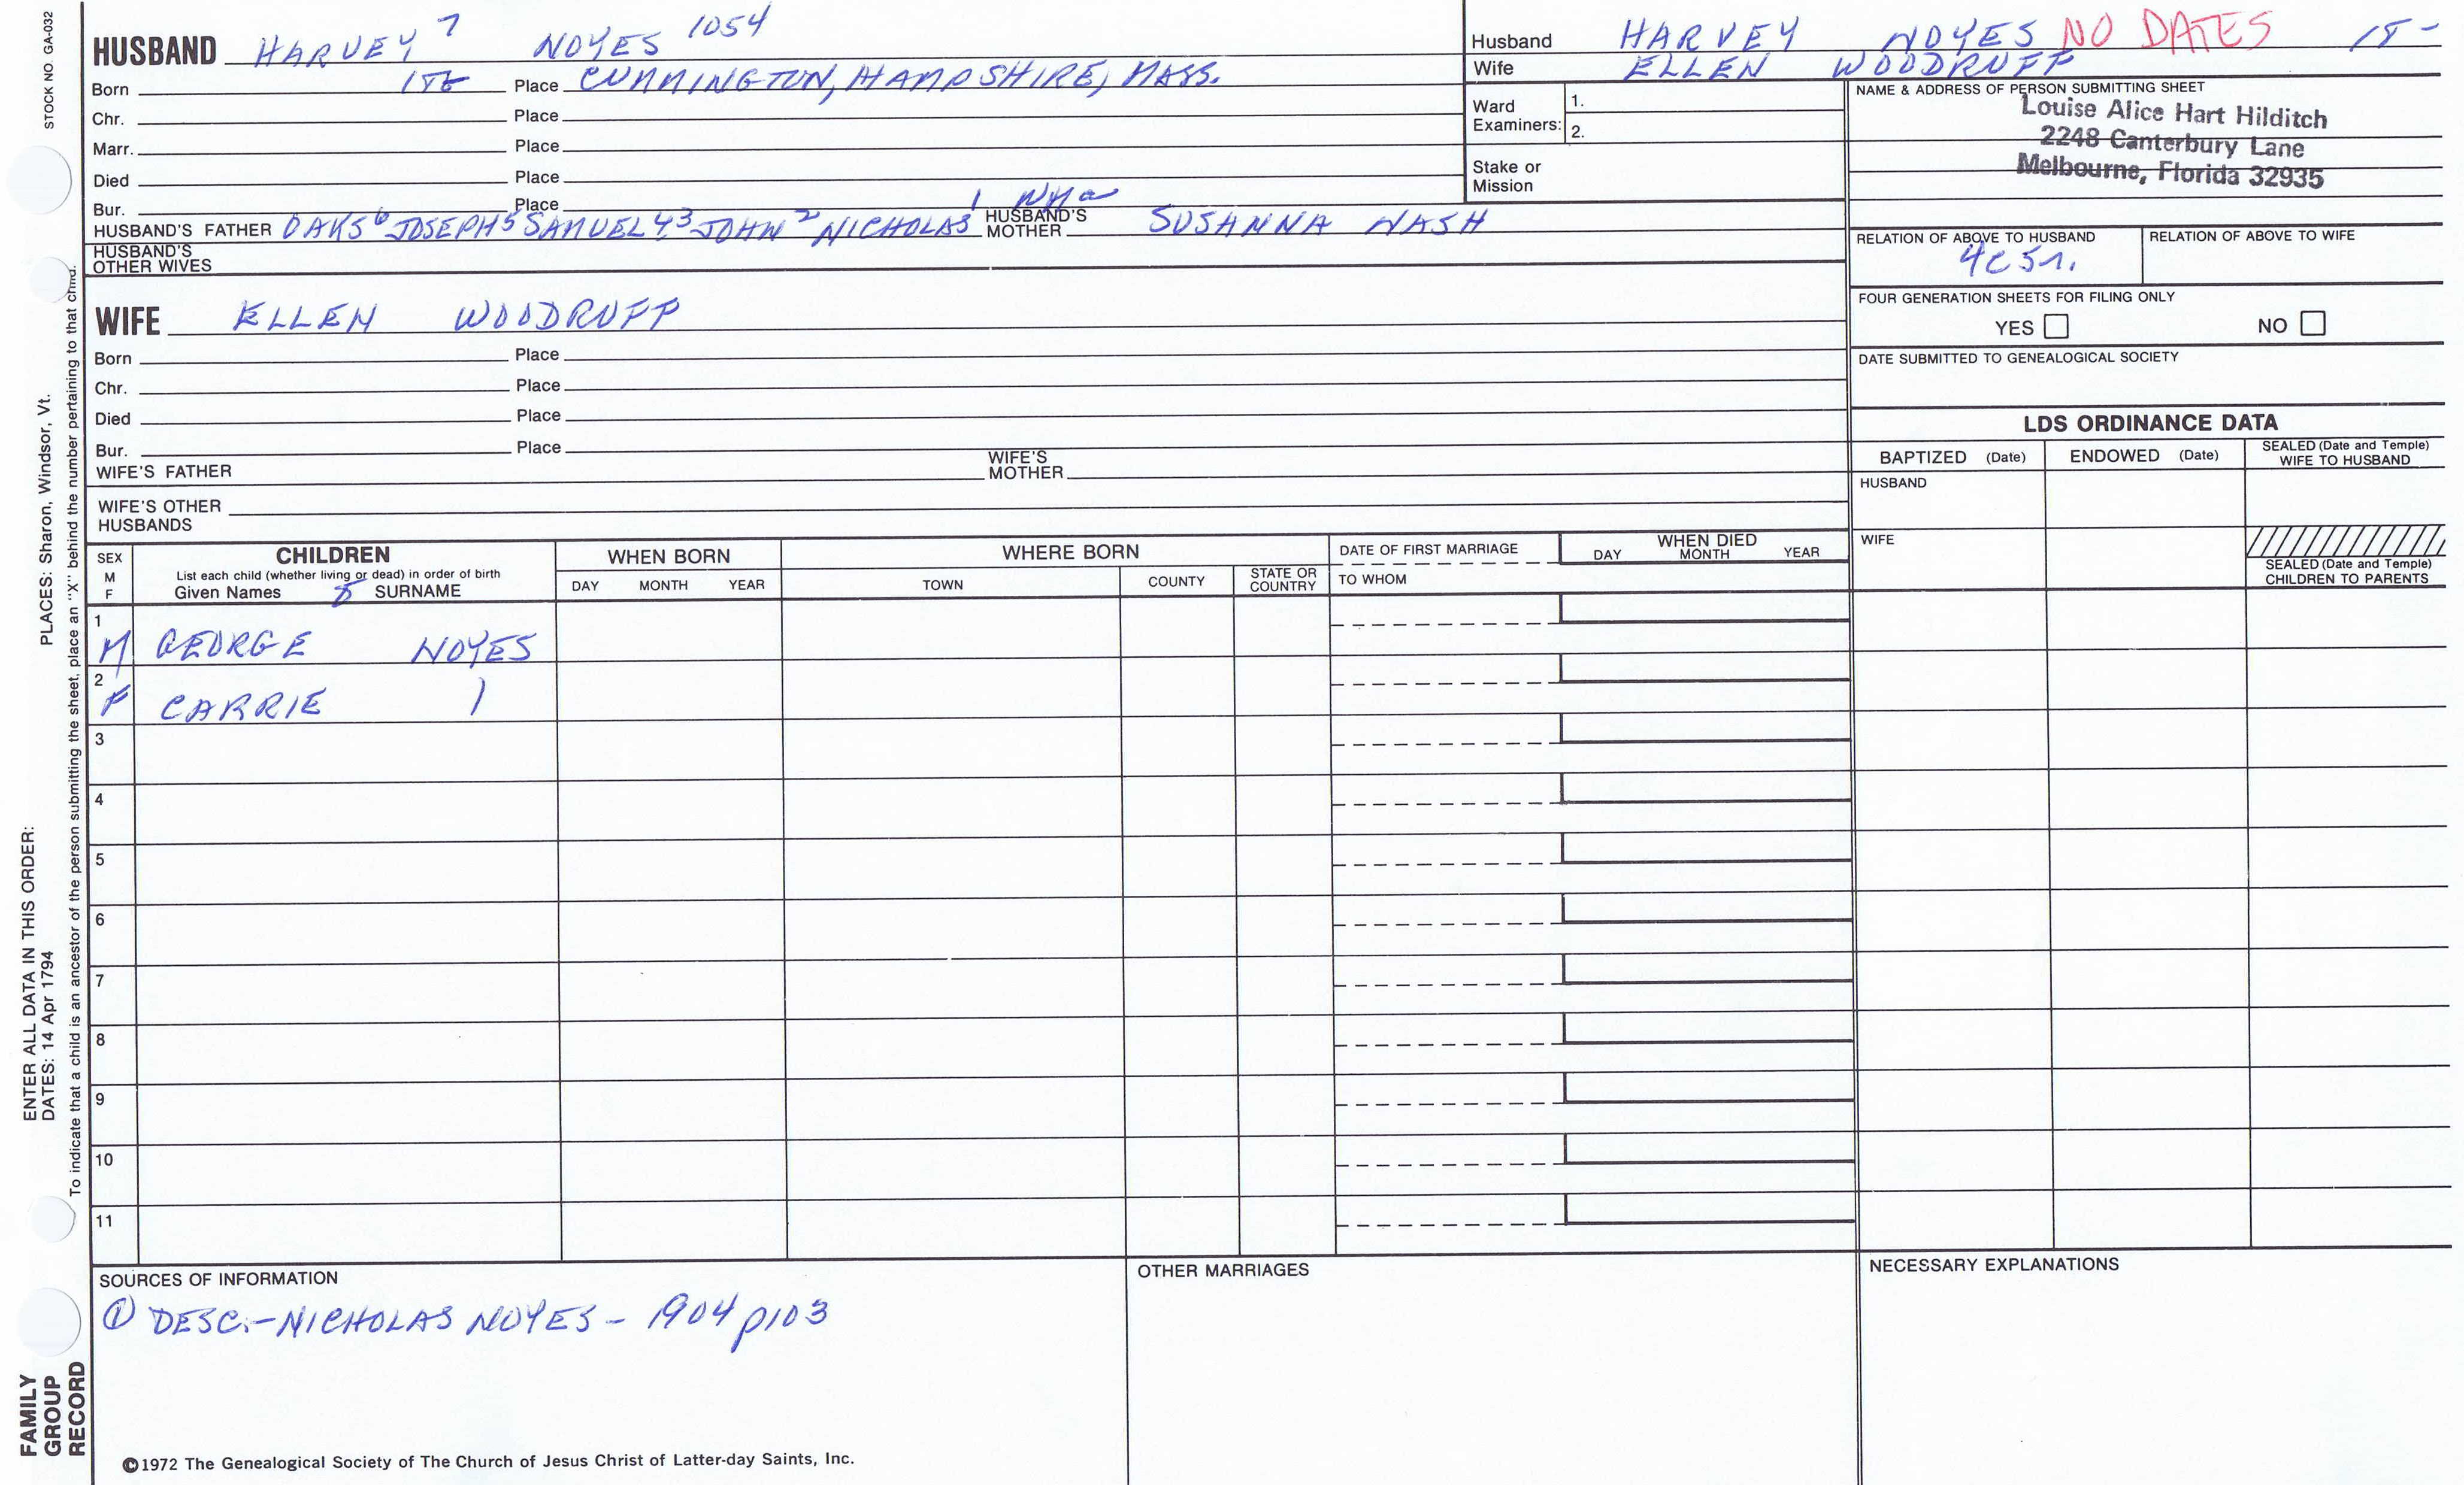 STOCK NO. GA-032
HUSBAND HARVEY 7 NOYES 1054
Born 18 Place CUMMINGTON, HAMPSHIRE, MASS.
Chr. Place
Marr. Place
Died Place
Bur. Place
HUSBAND'S FATHER OAKS 6 JOSEPH 5 SAMUEL 4,3 JOHN 2 NICHOLAS 1 HUSBAND'S MOTHER SUSANNA NASH
HUSBAND'S OTHER WIVES
WIFE ELLEN WOODRUFF
Born Place
Chr. Place
Died Place
Bur. Place
WIFE'S FATHER WIFE'S MOTHER
WIFE'S OTHER HUSBANDS
Husband HARVEY NOYES NO DATES 18-
Wife ELLEN WOODRUFF
Ward Examiners: 1.
2.
Stake or Mission
NAME & ADDRESS OF PERSON SUBMITTING SHEET
Louise Alice Hart Hilditch
2248 Canterbury Lane
Melbourne, Florida 32935
RELATION OF ABOVE TO HUSBAND RELATION OF ABOVE TO WIFE
4C 5r.
FOUR GENERATION SHEETS FOR FILING ONLY
YES NO
DATE SUBMITTED TO GENEALOGICAL SOCIETY
LDS ORDINANCE DATA
BAPTIZED (Date) ENDOWED (Date) SEALED (Date and Temple) WIFE TO HUSBAND
HUSBAND
WIFE
SEALED (Date and Temple) CHILDREN TO PARENTS
SEX M F CHILDREN WHEN BORN WHERE BORN DATE OF FIRST MARRIAGE WHEN DIED
List each child (whether living or dead) in order of birth
Given Names 8 SURNAME DAY MONTH YEAR TOWN COUNTY STATE OR COUNTRY TO WHOM DAY MONTH YEAR
1 M GEORGE NOYES
2 F CARRIE
3
4
5
6
7
8
9
10
11
SOURCES OF INFORMATION
① DESC.-NICHOLAS NOYES - 1904 p103
OTHER MARRIAGES
NECESSARY EXPLANATIONS
©1972 The Genealogical Society of The Church of Jesus Christ of Latter-day Saints, Inc.
FAMILY GROUP RECORD
ENTER ALL DATA IN THIS ORDER:
DATES: 14 Apr 1794
PLACES: Sharon, Windsor, Vt.
To indicate that a child is an ancestor of the person submitting the sheet, place an "X" behind the number pertaining to that child.